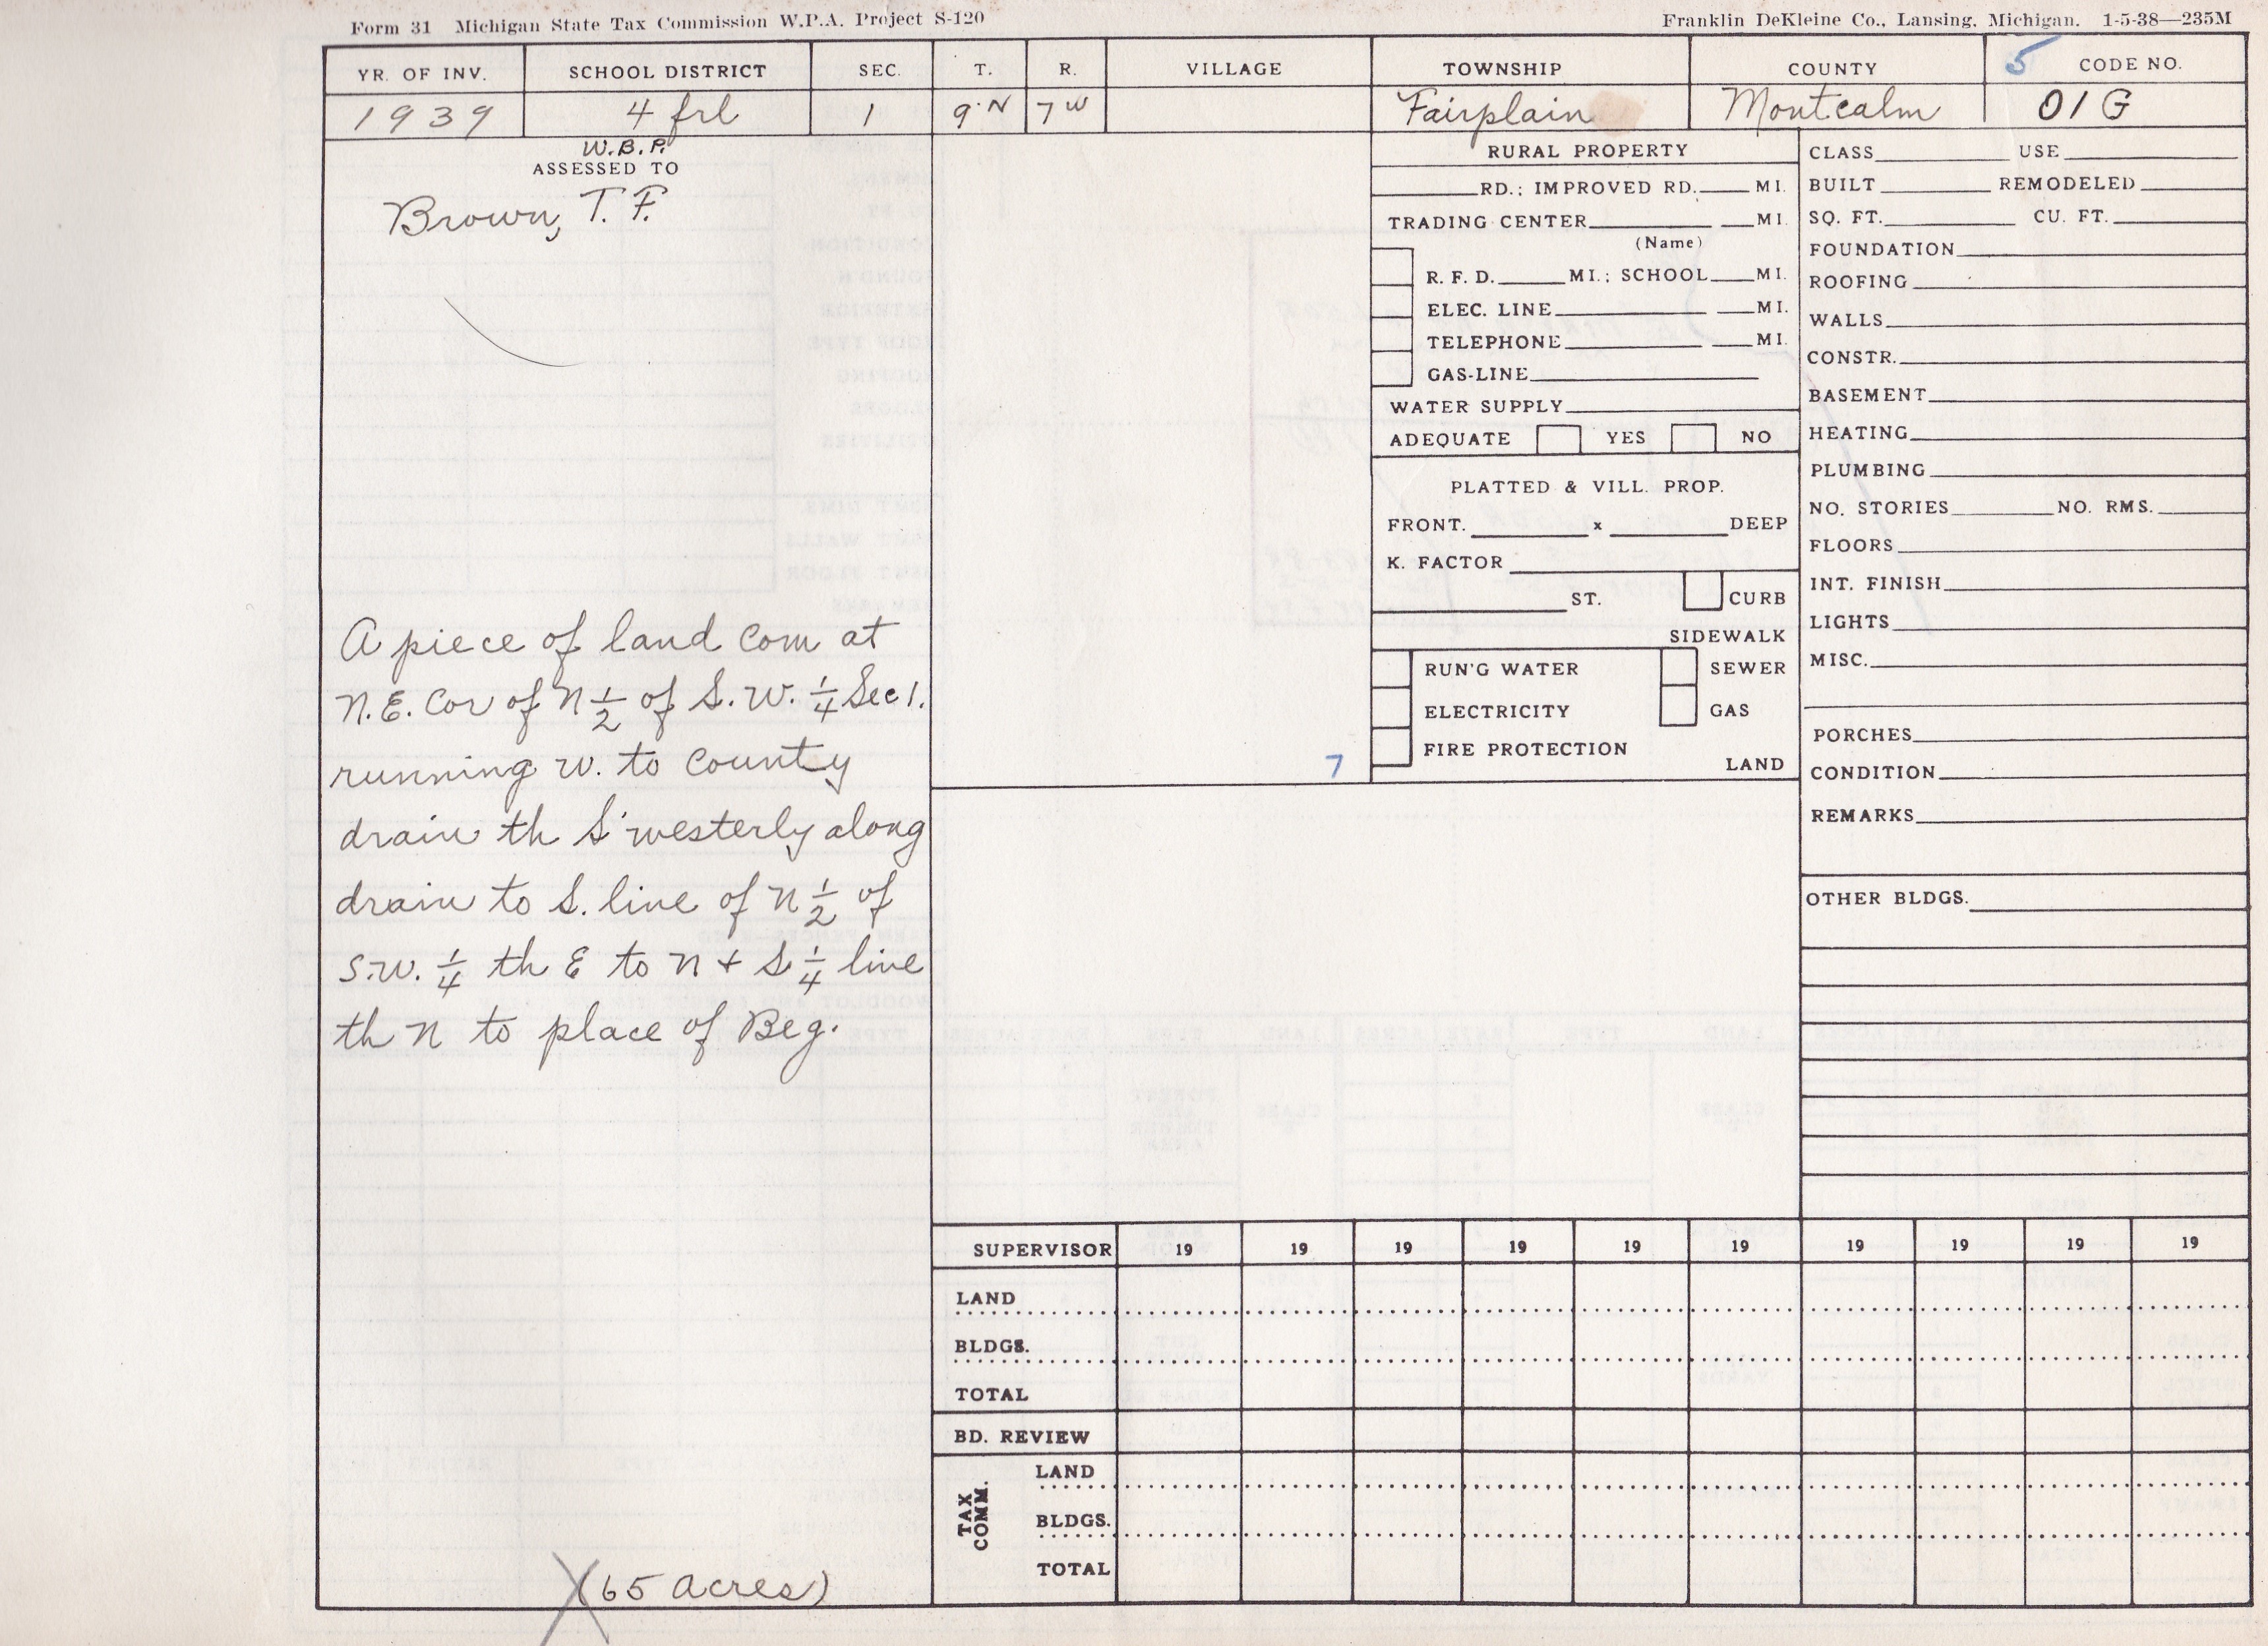 Form 31 Michigan State Tax Commission W.P.A. Project S-120
Franklin DeKleine Co., Lansing, Michigan. 1-5-38—235M
YR. OF INV. SCHOOL DISTRICT SEC. T. R. VILLAGE TOWNSHIP COUNTY 5 CODE NO.
1939 4 frl 1 9 N 7 W Fairplain Montcalm 01 G
W.B.P.
ASSESSED TO
Brown, T. F.
A piece of land com at
N.E. Cor of N 1/2 of S.W. 1/4 Sec 1.
running W. to County
drain th S'westerly along
drain to S. line of N 1/2 of
S.W. 1/4 th E to N + S 1/4 line
th N to place of Beg.
(65 acres)
7
RURAL PROPERTY
RD.; IMPROVED RD. MI.
TRADING CENTER MI.
(Name)
R. F. D. MI.; SCHOOL MI.
ELEC. LINE MI.
TELEPHONE MI.
GAS-LINE
WATER SUPPLY
ADEQUATE YES NO
PLATTED & VILL. PROP.
FRONT. x DEEP
K. FACTOR
ST. CURB
SIDEWALK
RUN'G WATER SEWER
ELECTRICITY GAS
FIRE PROTECTION
LAND
CLASS USE
BUILT REMODELED
SQ. FT. CU. FT.
FOUNDATION
ROOFING
WALLS
CONSTR.
BASEMENT
HEATING
PLUMBING
NO. STORIES NO. RMS.
FLOORS
INT. FINISH
LIGHTS
MISC.
PORCHES
CONDITION
REMARKS
OTHER BLDGS.
SUPERVISOR 19 19 19 19 19 19 19 19 19 19
LAND
BLDGS.
TOTAL
BD. REVIEW
TAX COMM.
LAND
BLDGS.
TOTAL